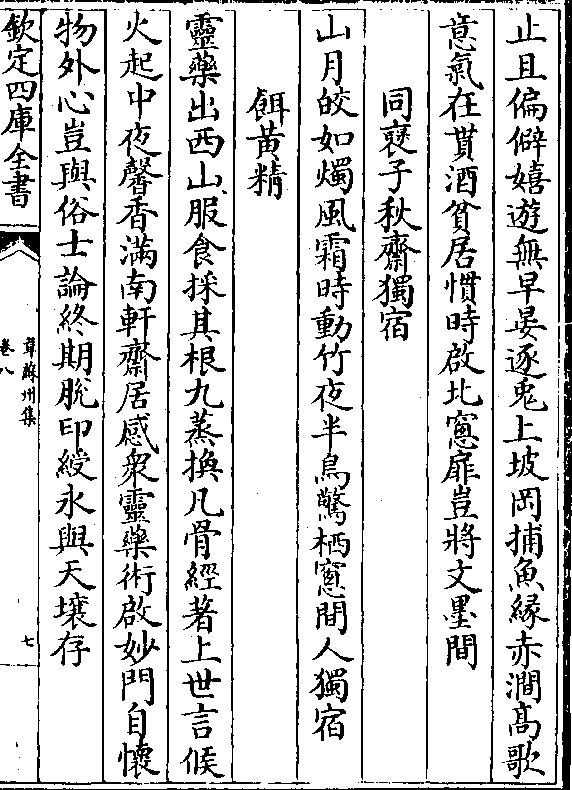 止且偏僻嬉遊無早晏逐兎上坡岡捕魚縁赤澗髙歌
意氣在貰酒貧居慣時啟北窓扉豈將文墨間
同裒子秋齋獨宿
山月皎如燭風霜時動竹夜半鳥驚栖窓間人獨宿
餌黄精
靈藥出西山服食採其根九蒸換凡骨經著上世言候
火起中夜馨香滿南軒齋居感衆靈藥術啟妙門自懷
物外心豈與俗士論終期脫印綬永與天壤存
欽定四庫全書
韋蘇州集
卷八
七